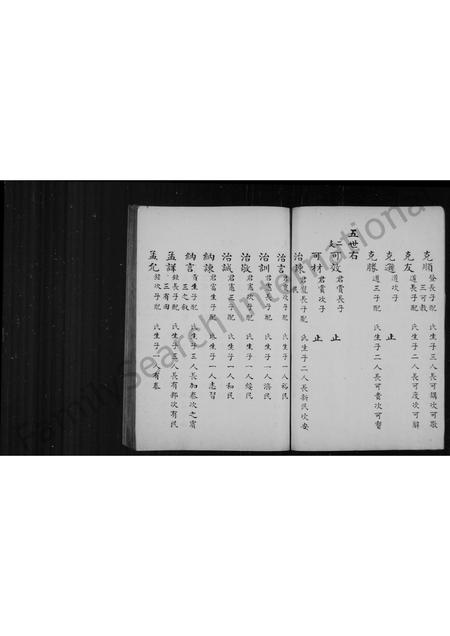 克順 發長子配 氏生子三人長可鄰次可敬
三可教
克友 道長子配 氏生子二人長可度次可解
克邇 道次子 止
克勝 道三子配 氏生子二人長可貴次可
五世右
二支 可效 君賞長子
可材 君賞次子 止
治諫 君寵長子配 氏生子二人長新民次安
民
治言 君寵次子配 氏生子一人裕民
治訓 君憲長子配 氏生子一人
治敬 君憲次子配 氏生子一人綏民
治誠 君憲三子配 氏生子一人和民
納諫 君富生子配 氏生子一人志習
納言 君 生子配 氏生子三人長加泰次之賓
三之敘
孟詳 鎡長子配 氏生子三人長有邦次有民
三有園
孟允 鎡次子配 氏生子一人有泰
FamilySearch International